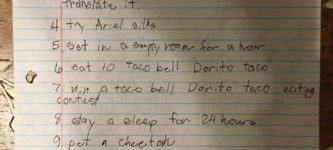 translate it.
4. try Ariel silks
5. set in a empty room for a hour
6 eat 10 taco bell Dorito taco
7 win a taco bell Dorito taco eating
contest
8 stay a sleep for 24 hours
9. pet a cheetah